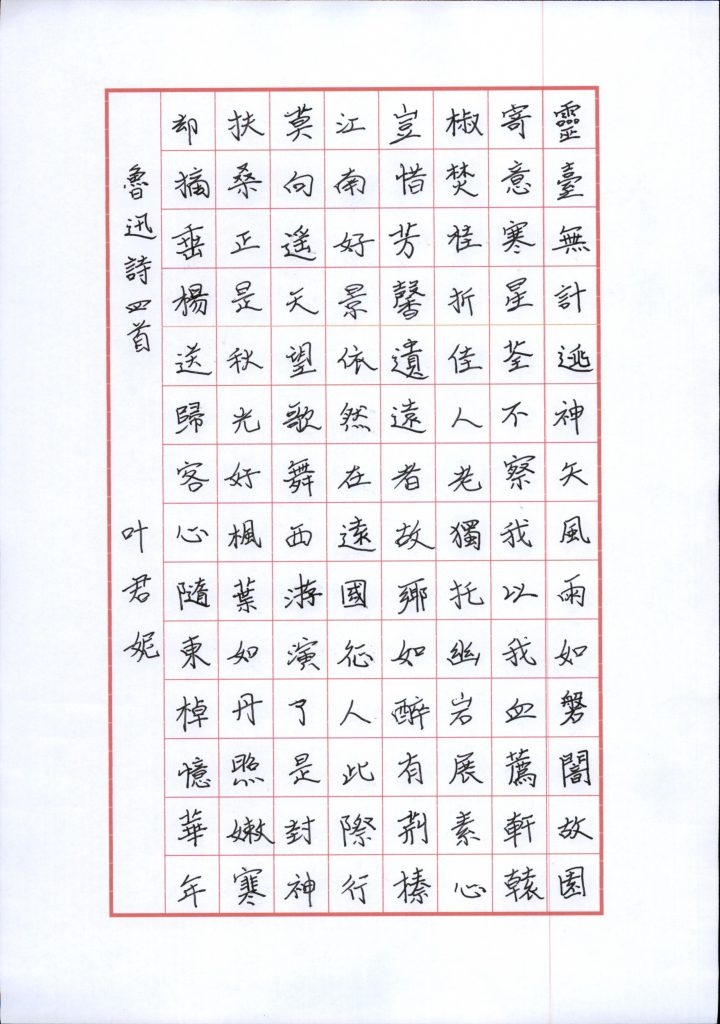 靈臺無計逃神矢風雨如磐闇故園
寄意寒星荃不察我以我血薦軒轅
椒焚桂折佳人老獨托幽岩展素心
豈惜芳馨遺遠者故鄉如醉有荆榛
江南好景依然在遠國征人此際行
莫向遥天望歌舞西游演了是封神
扶桑正是秋光好楓葉如丹照嫩寒
却摘垂楊送歸客心隨東棹憶華年
魯迅詩四首 叶君妮